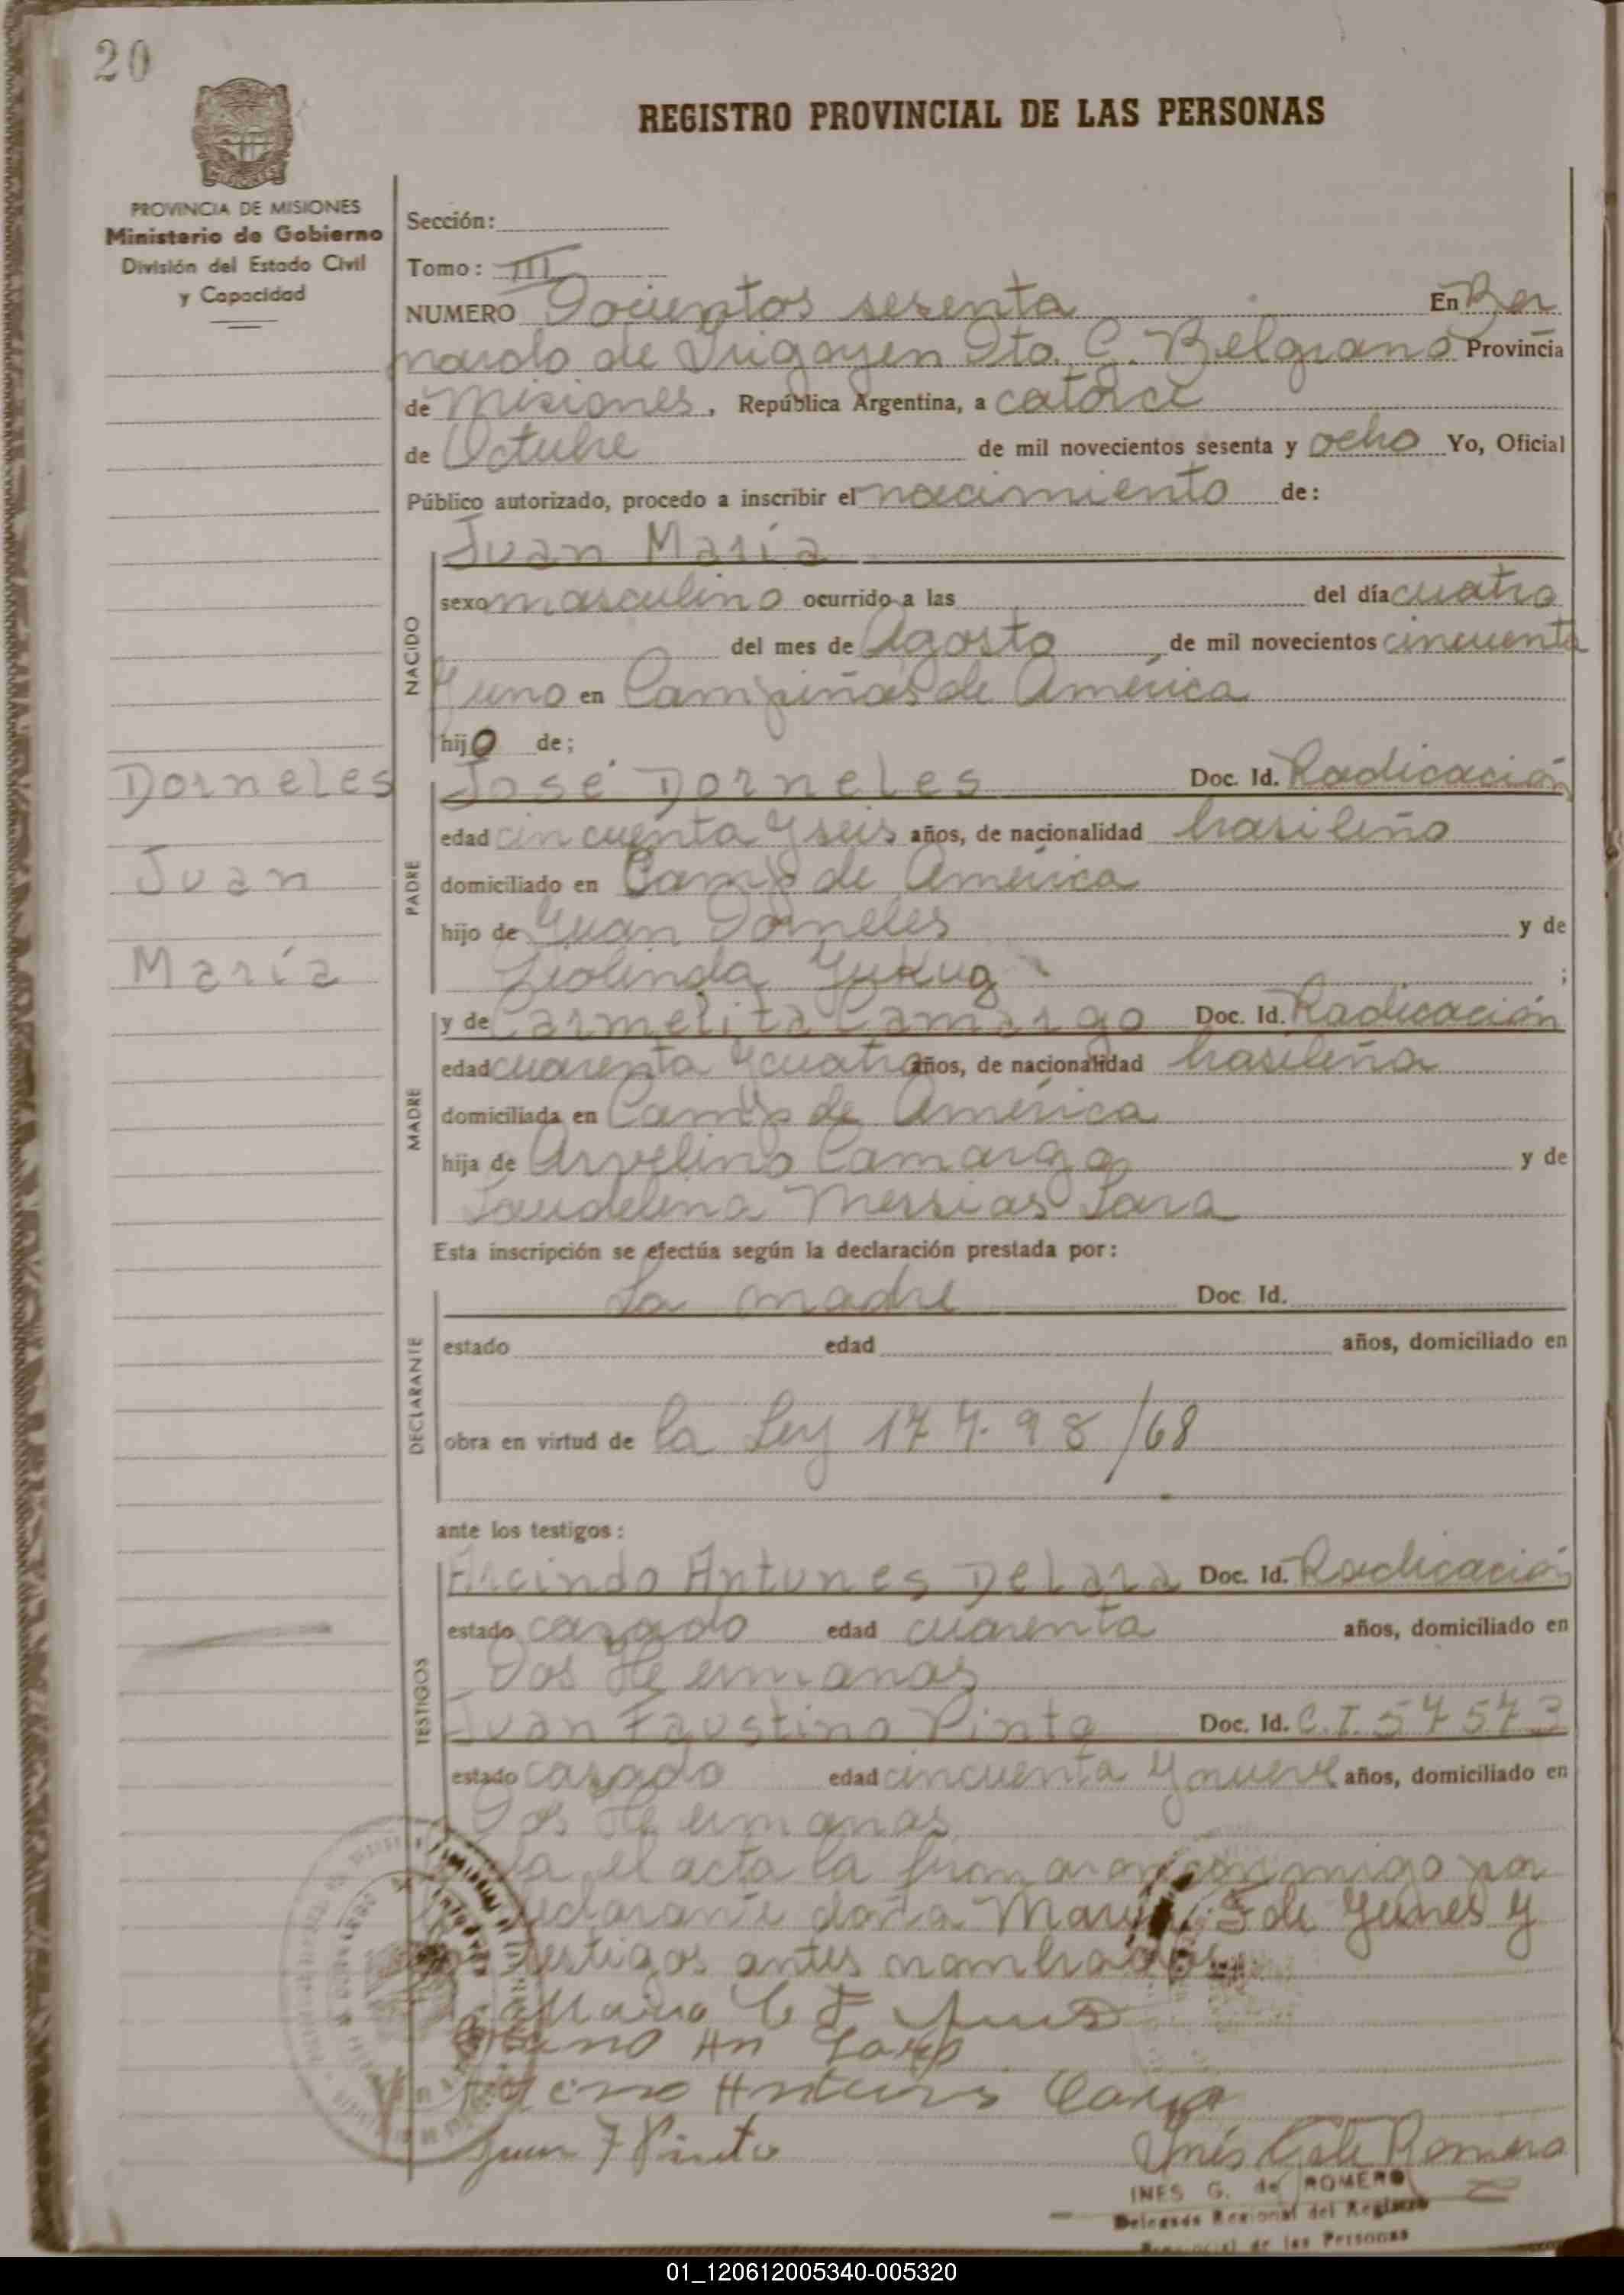 20
REGISTRO PROVINCIAL DE LAS PERSONAS
PROVINCIA DE MISIONES
Ministerio de Gobierno
División del Estado Civil
y Capacidad
Sección:
Tomo: III
NUMERO Docientos sesenta En Ber
nardo de Irigoyen Dto. G. Belgrano Provincia
de Misiones, República Argentina, a catorce
de Octubre de mil novecientos sesenta y ocho Yo, Oficial
Público autorizado, procedo a inscribir el nacimiento de:
Juan María
NACIDO
sexo masculino ocurrido a las del día cuatro
del mes de Agosto de mil novecientos cincuenta
y uno en Campiñas de América
hijo de;
Dorneles
Juan
María
PADRE
José Dorneles Doc. Id. Radicación
edad cincuenta y seis años, de nacionalidad brasileño
domiciliado en Camp de América
hijo de Juan Dorneles y de
Liolinda ;
MADRE
y de Carmelita Camargo Doc. Id. Radicación
edad cuarenta y cuatro años, de nacionalidad brasileña
domiciliada en Camp de América
hija de Arvelino Camargo y de
Laudelina Messias Lara
Esta inscripción se efectúa según la declaración prestada por:
DECLARANTE
La madre Doc. Id.
estado edad años, domiciliado en
obra en virtud de la Ley 17 4.98/68
ante los testigos:
TESTIGOS
Arcindo Antunes De Lara Doc. Id. Radicación
estado casado edad cuarenta años, domiciliado en
Dos Hermanas
Juan Faustino Pinto Doc. Id. C.I. 57573
estado casado edad cincuenta y nueve años, domiciliado en
Dos Hermanas
el acta la firmaron conmigo por
declarante doña F de Yunes y
testigos antes nombrados
Juan F Pinto
Inés G de Romero
INES G. de ROMERO
Delegada Regional del Registro
Provincial de las Personas
01_120612005340-005320